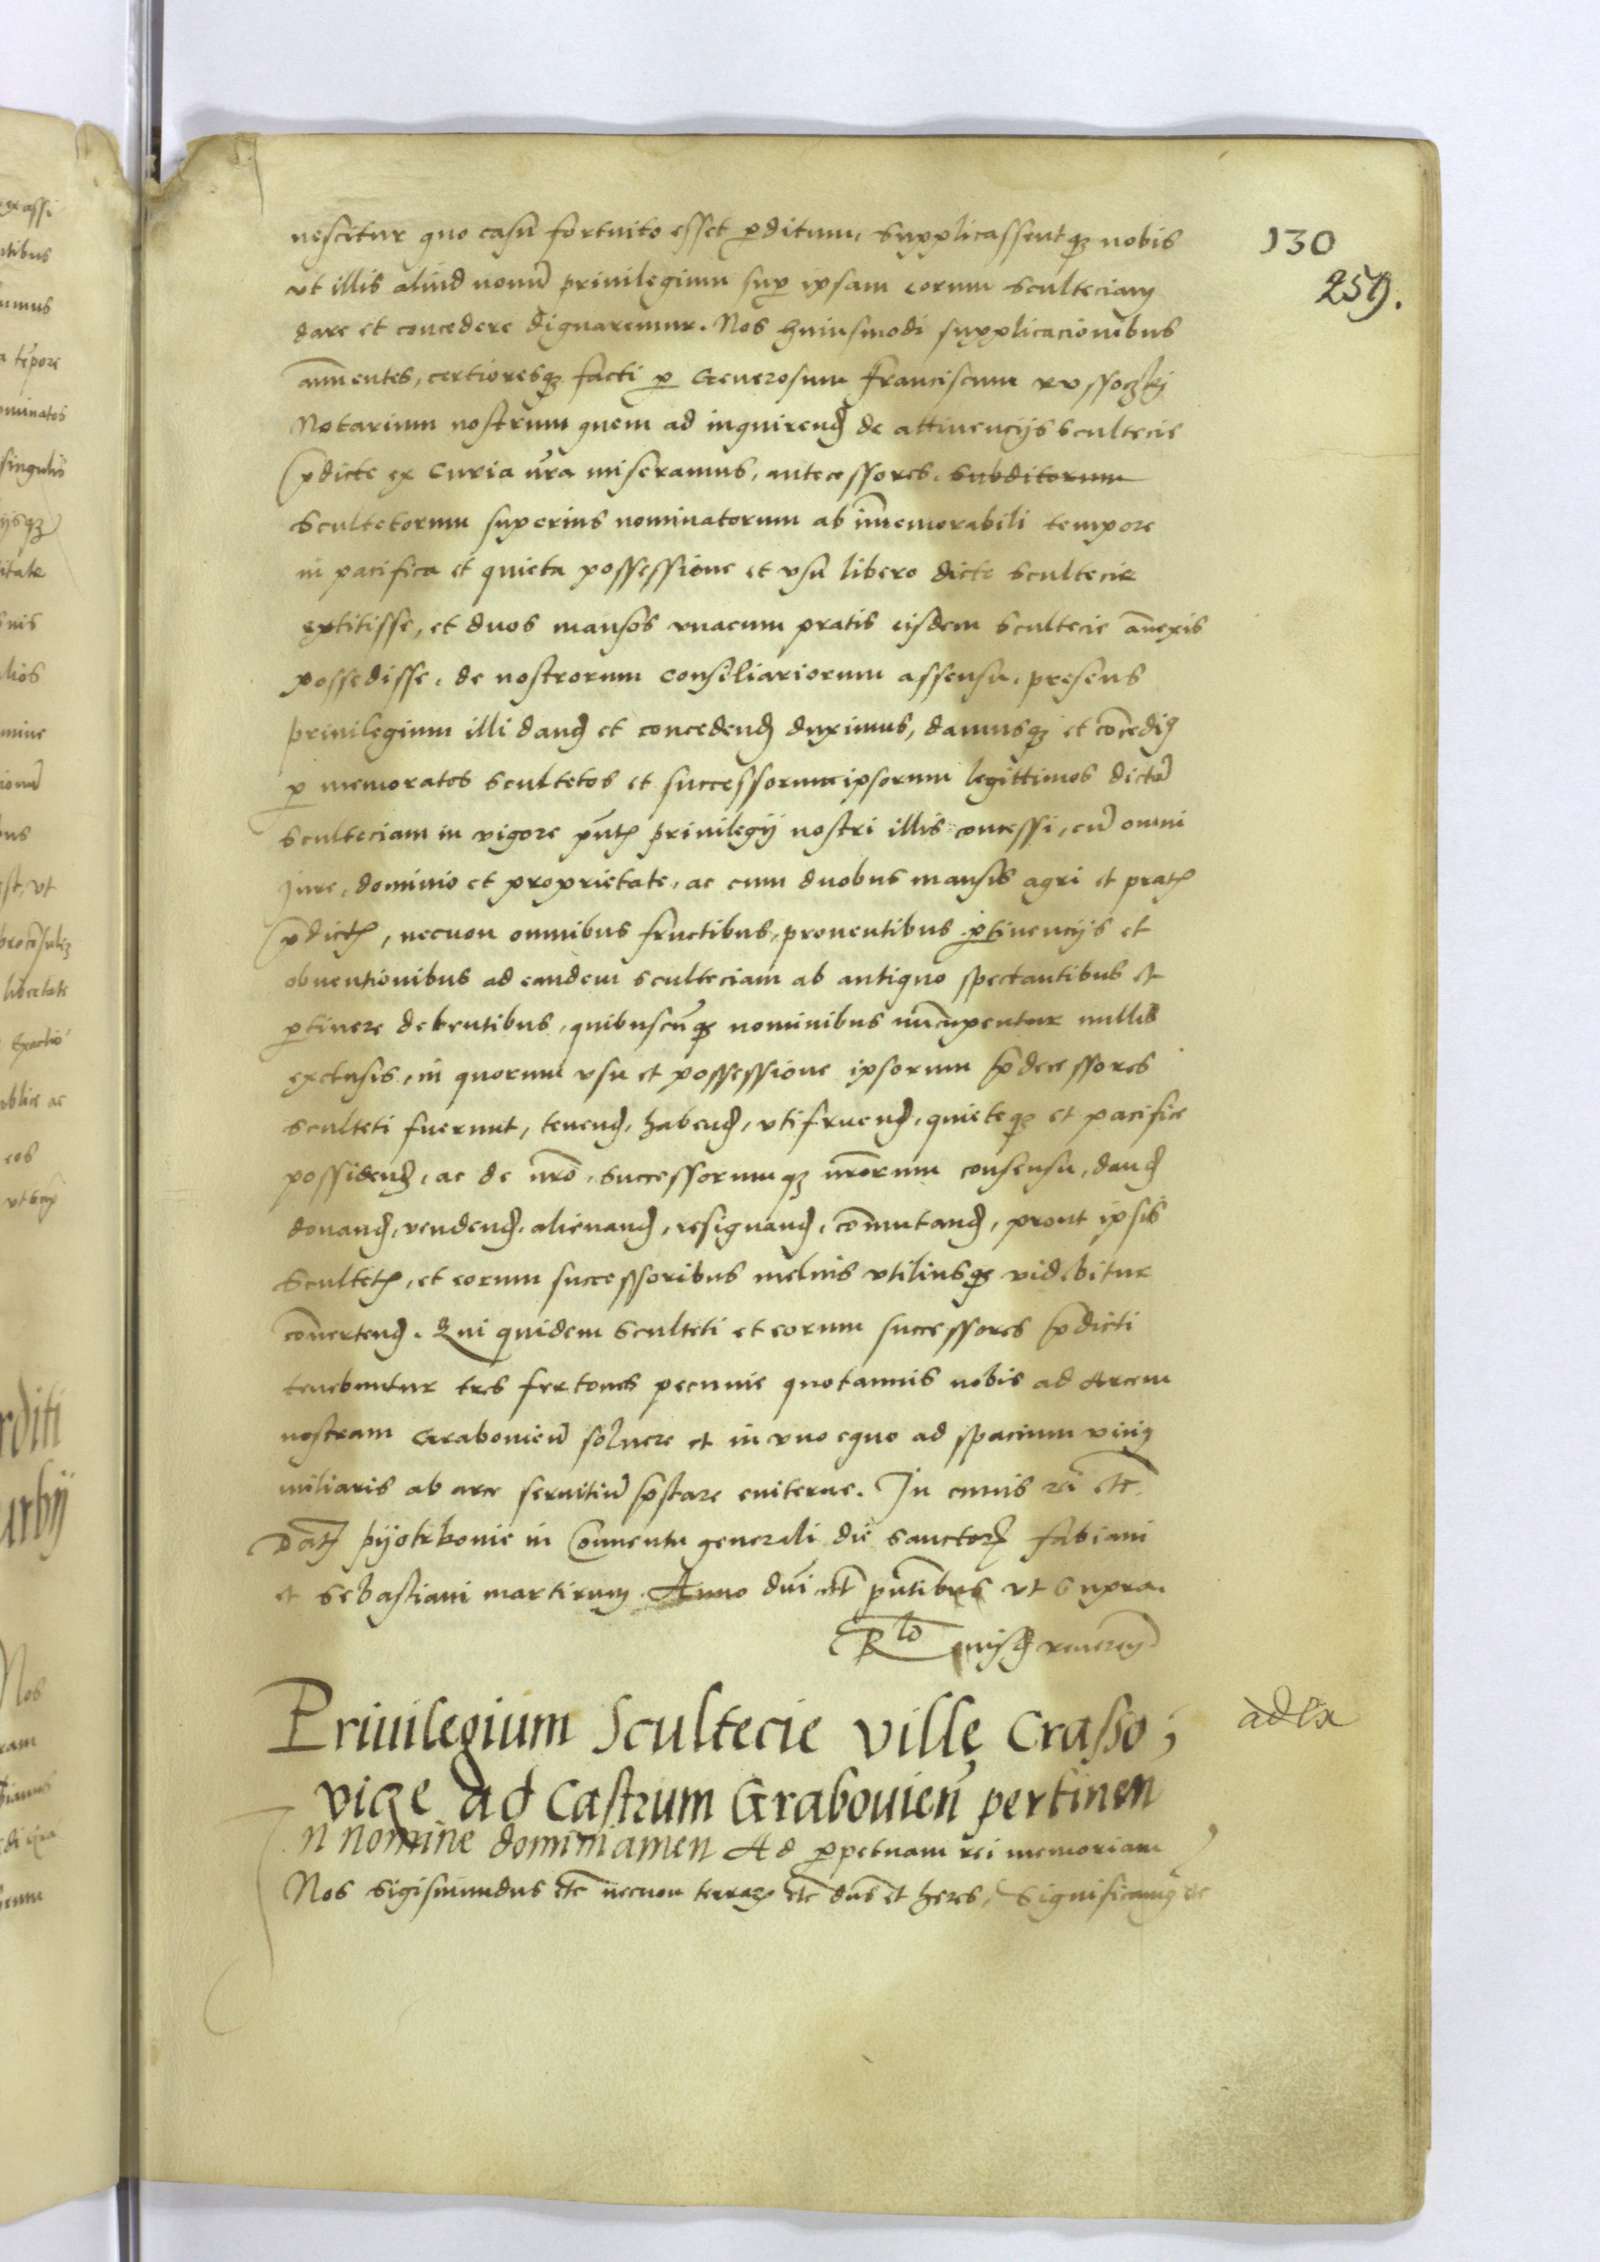 130
259.
nescitur quo casu fortuito esset p̱ditum, Supplicassentqꝫ nobis
vt illis aliud nouũ priuilegium sup̱ ipsam eorum Sculteciam
dare et concedere dignaremur. Nos huiusmodi supplicacionibus
añuentes, certioresqꝫ facti p̱ Generosum Franciscum
Notarium nostrum quem ad inquirend de attinencijs scultecie
p̄dicte ex Curia nr̃a miseramus, antecessores. subditorum
Scultetorum superius nominatorum ab im̃emorabili tempore
in pacifica et quieta possessione et vsu libero dicte scultecie
extitisse, et duos mansos vnacum pratis eisdem scultecie añexis
possedisse, de nostrorum consiliariorum assensu, presens
priuilegium illi dand et concedend duximus, damusqꝫ et concediꝰ
p̱ memoratos scultetos et successorum ipsorum legittimos dictã
Sculteciam in vigore pñtꝭ priuilegij nostri illis concessi, cũ omni
Jure, dominio et proprietate, ac cum duobus mansis agri et pratꝭ
p̄dictꝭ, necnon omnibus fructibus, prouentibus p̱tinencijs et
obuentionibus ad eandem sculteciam ab antiquo spectantibus et
p̱tinere debentibus, quibuscũqꝫ nominibus nũcupentur nullis
exclusis, in quorum vsu et possessione ipsorum p̄decessores
sculteti fuerunt, tenend, habend, vtifruend, quieteqꝫ et pacifice
possidend, ac de nr̃o, successorumqꝫ nr̃orum consensu, dand
donand, vendend, alienand, resignand, com̃utand, prout ipsis
Scultetꝭ, et eorum successoribus melius vtiliusqꝫ videbitur
conuertend. Qui quidem Sculteti et eorum successores p̄dicti
tenebuntur tres fertones pecunie quotannis nobis ad Arcem
nostram Grabouieñ soluere et in vno equo ad spacium vniꝰ
miliaris ab arce seruitiũ p̄stare eviterne. In cuius rei etc̃
Datꝭ pijotrkouie in Conuentu generali die sanctorꝝ Fabiani
et Sebastiani martirum Anno dñi etc̃ pñtibus vt Supra.
Rlo
Priuilegium Scultecie ville Crasso,
vice ad Castrum Grabouieñ pertinen
adlx
n nomine domini amen Ad p̱petuam rei memoriam
Nos Sigismundus etc̃ necnon terraꝝ etc̃ dñs et heres, Significamꝰ etc